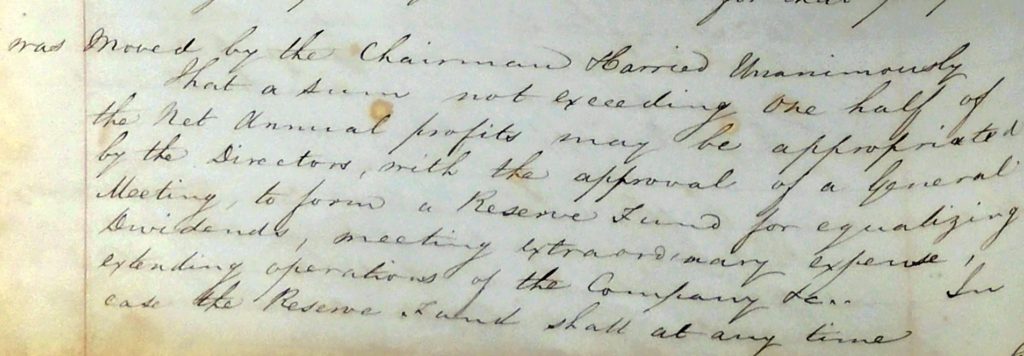 for that
was Moved by the Chairman & Carried Unanimously
That a sum not exceeding One half of
the Net Annual profits may be appropriated
by the Directors, with the approval of a General
Meeting, to form a Reserve Fund for equalizing
Dividends, meeting extraordinary expense,
extending operations of the Company &c.. In
case the Reserve Fund shall at any time